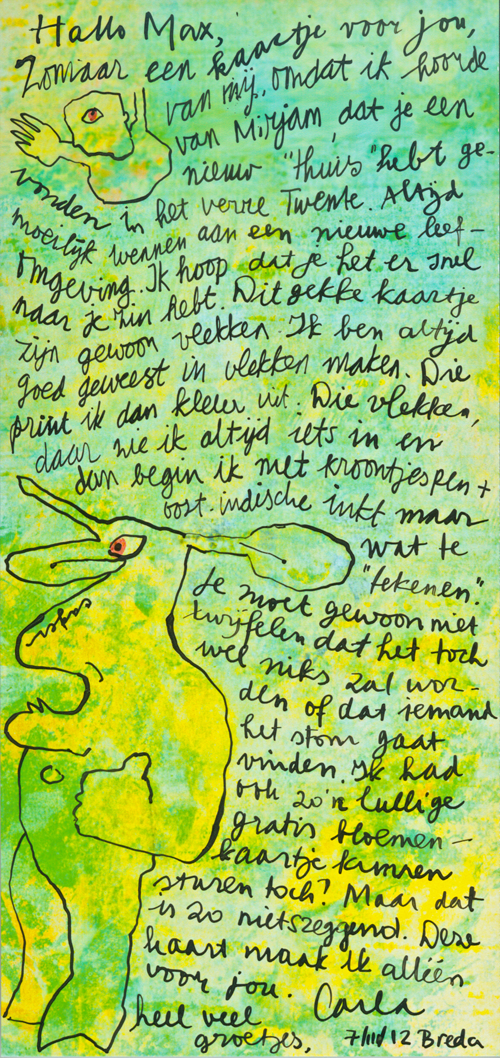 Hallo Max,
een kaartje voor jou,
Zomaar
van mij, omdat ik hoorde
van Mirjam, dat je een
nieuw "thuis" hebt ge-
vonden in het verre Twente. Altijd
moeilijk wennen aan een nieuwe leef-
omgeving. Ik hoop dat je het er snel
naar je zin hebt. Dit gekke kaartje
zijn gewoon vlekken. Ik ben altijd
goed geweest in vlekken maken. Die
print ik dan kleur uit. Die vlekken,
daar zie ik altijd iets in en
dan begin ik met kroontjespen +
oost-indische inkt maar
wat te
"tekenen."
Je moet gewoon niet
twijfelen dat het toch
wel niks zal wor-
den of dat iemand
het stom gaat
vinden. Ik had
ook zo'n lullige
gratis bloemen-
kaartje kunnen
sturen toch? Maar dat
is zo nietszeggend. Deze
kaart maak ik alléén
voor jou.
Carla
heel veel
groetjes,
7/III/12 Breda